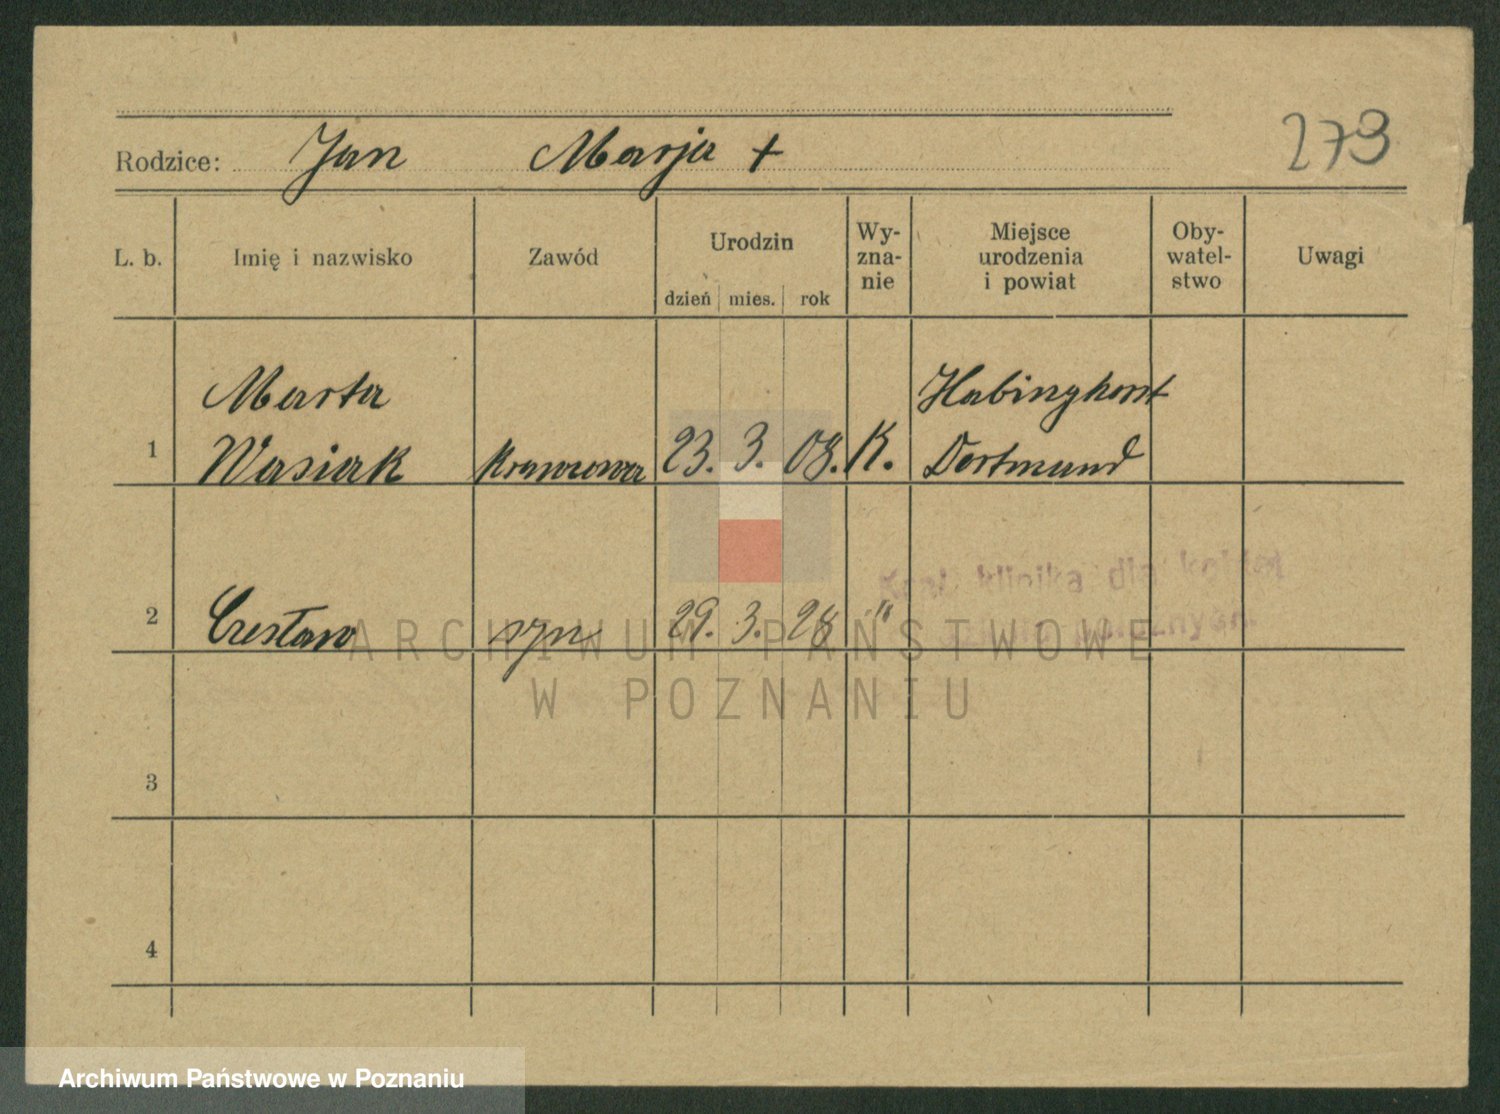 Rodzice: Jan Marja +
273
L. b. Imię i nazwisko Zawód Urodzin dzień mies. rok Wy-zna-nie Miejsce urodzenia i powiat Oby-watel-stwo Uwagi
Marta Habinghorst
1 Wasiak Krawcowa 23. 3. 08. K. Dortmund
klinika dla kobiet
2 Czesław syn 29. 3. 28 "
ARCHIWUM PAŃSTWOWE
W POZNANIU
3
4
Archiwum Państwowe w Poznaniu